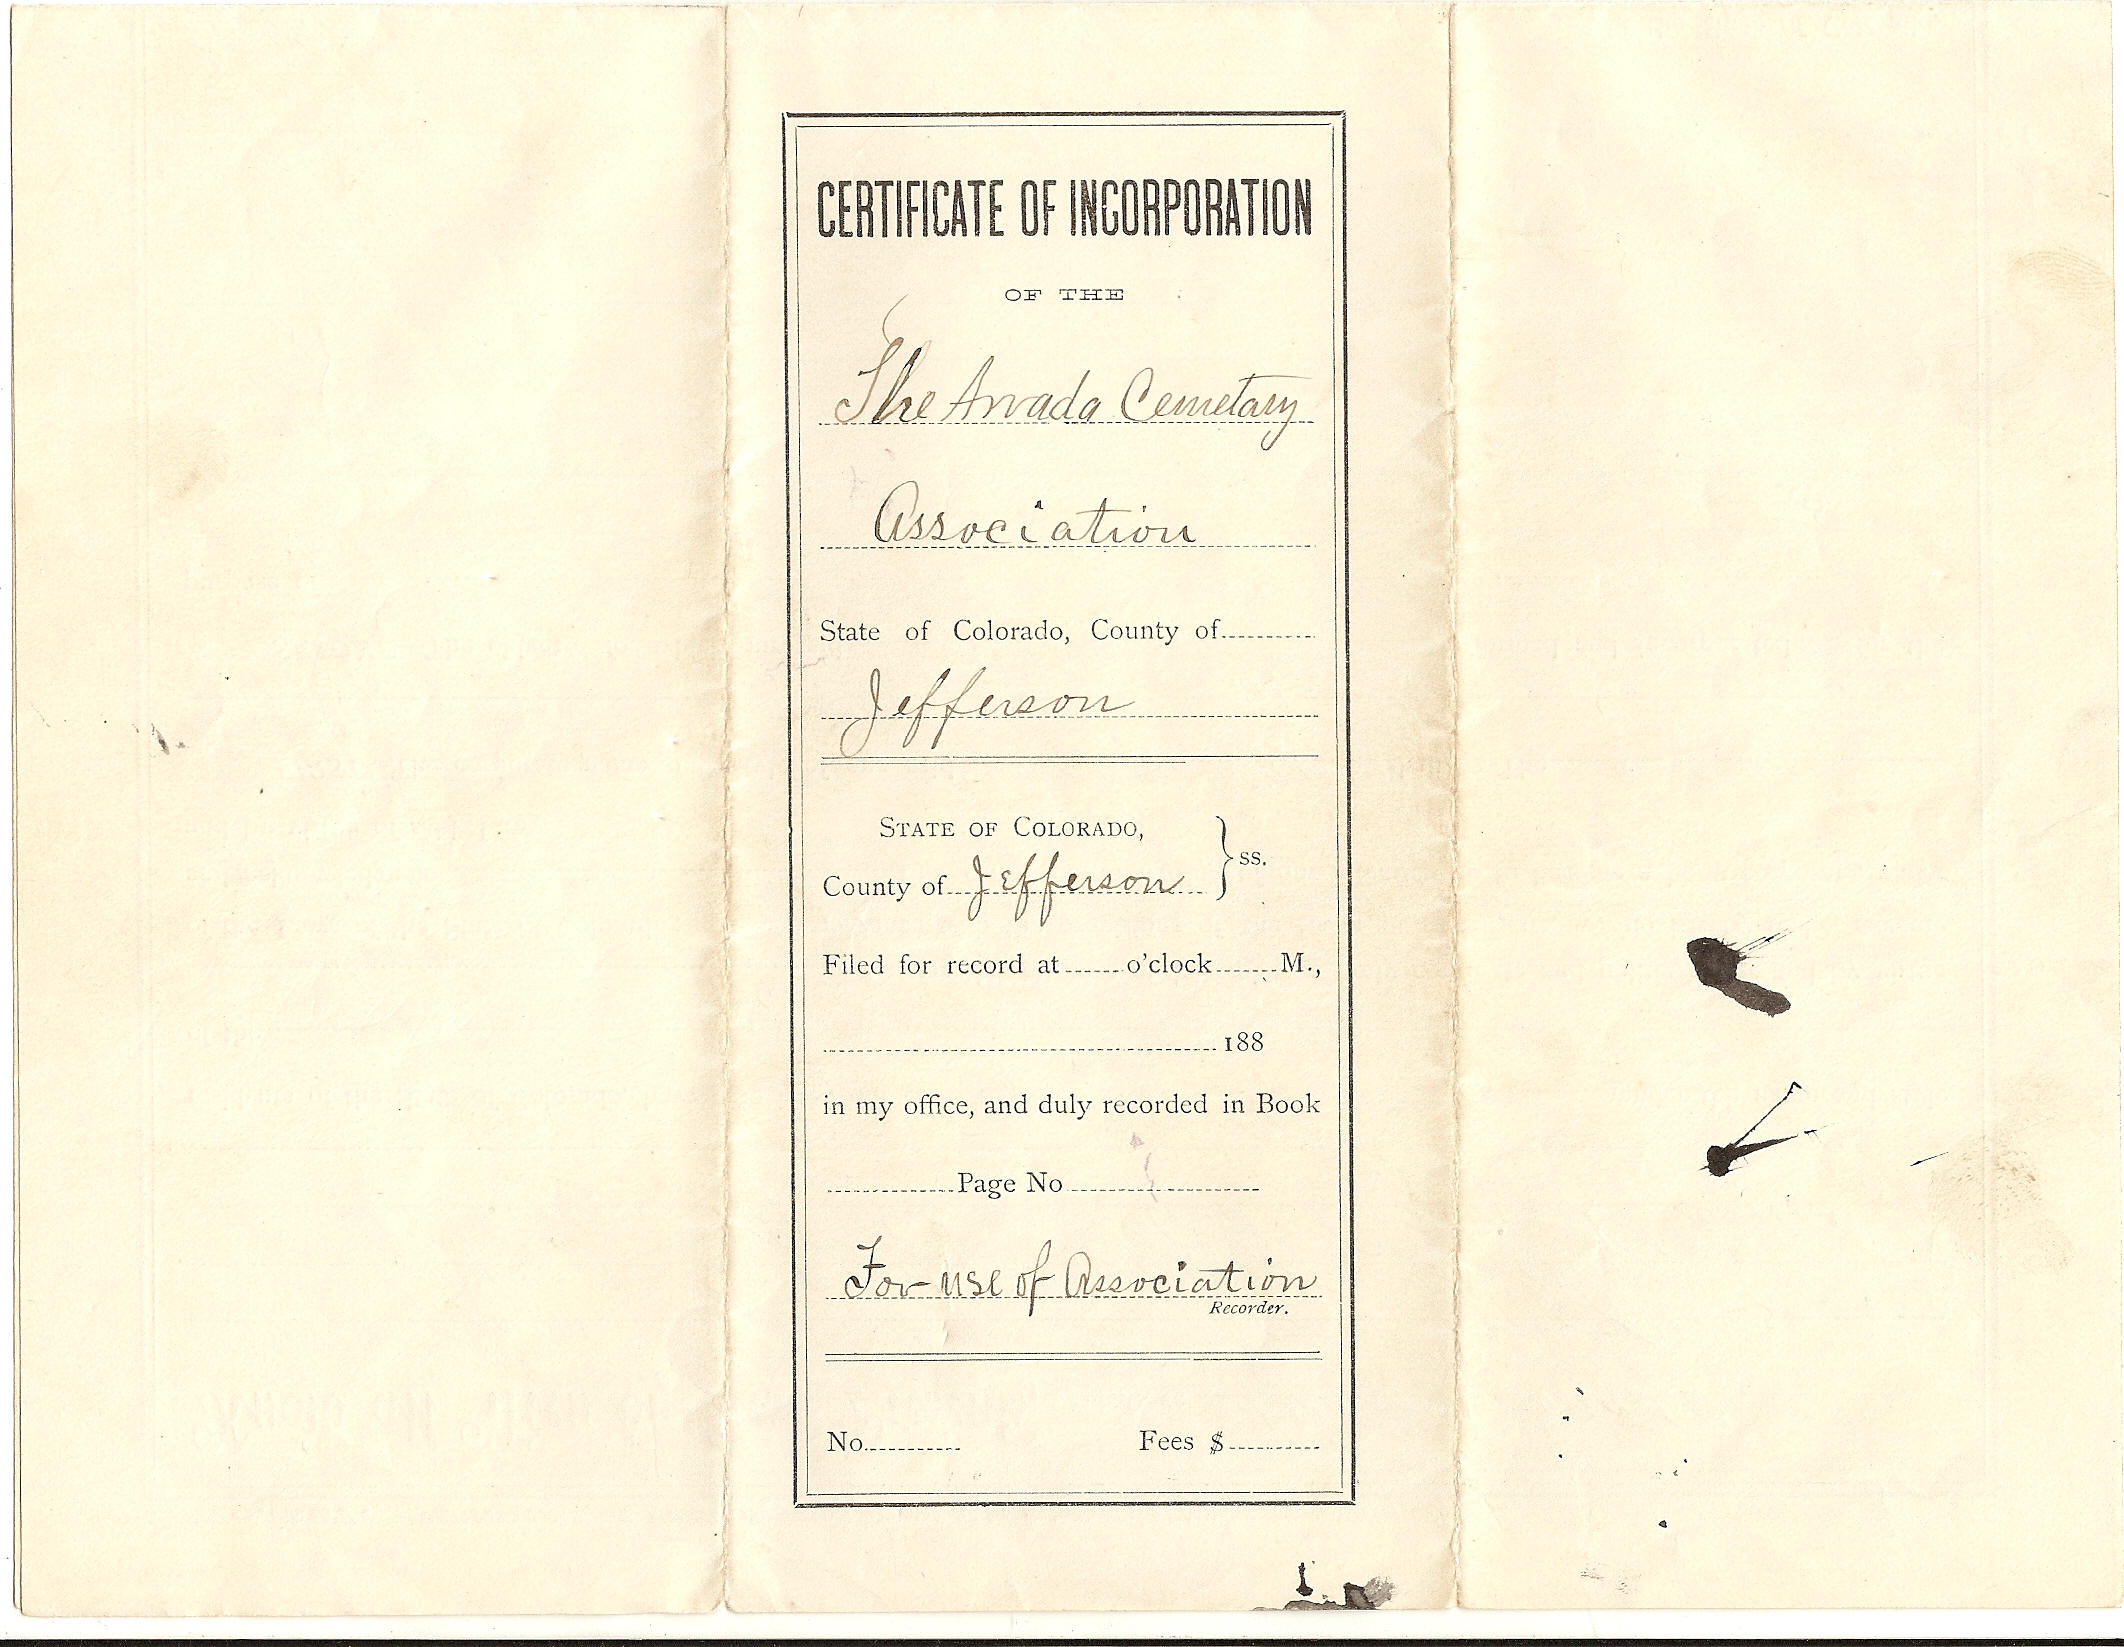 CERTIFICATE OF INCORPORATION
OF THE
The Arvada Cemetary
Association
State of Colorado, County of
Jefferson
STATE OF COLORADO,
County of Jefferson } ss.
Filed for record at ...... o'clock ...... M.,
188
in my office, and duly recorded in Book
Page No
For use of Association
Recorder.
No. Fees $